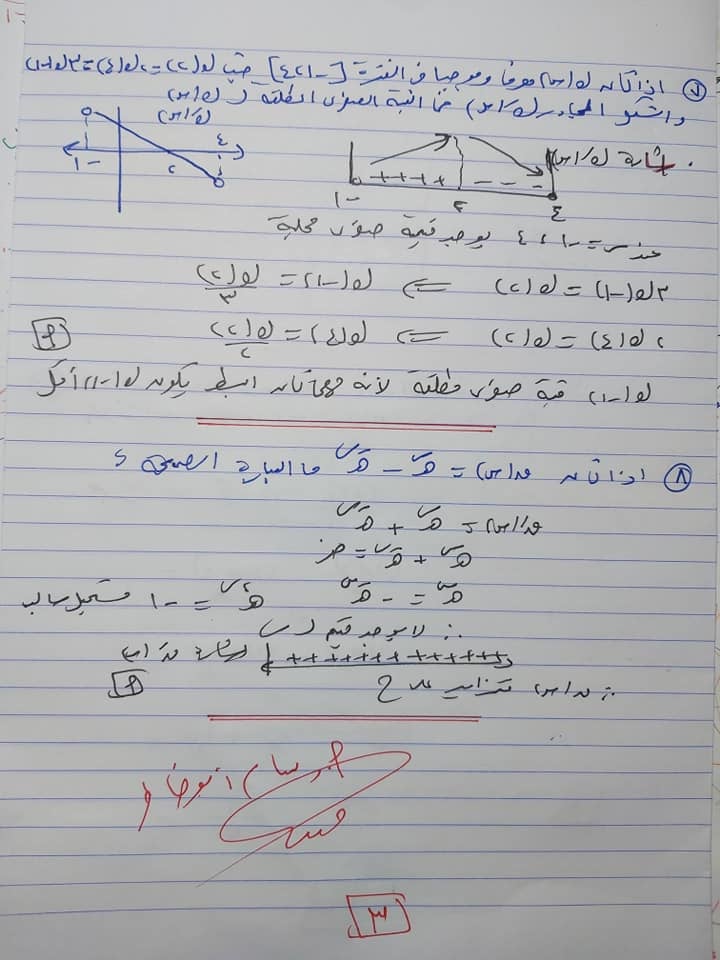 ٧ اذا كان ق(س) معرفا وموجبا في الفترة [-١،٤] حيث ق(٢)=٢ق(٤)=٣ق(-١)
والشكل المجاور قَ(س) فما قيمة الصغرى المطلقة لـ ق(س)
قَ(س)
-١ ٢ ٤
اشارة قَ(س)
++++ - - -
-١ ٢ ٤
عند س = -١ ، ٤ يوجد قيمة صغرى محلية
٣ق(-١) = ق(٢) ⇐ ق(-١) = ق(٢)/٣
٢ق(٤) = ق(٢) ⇐ ق(٤) = ق(٢)/٢
ق(-١) قيمة صغرى مطلقة لأنه مهما كان البسط يكون ق(-١) أقل
٨ اذا كان ق(س) = هـ^س - هـ^-س ما العبارة الصحيحة ؟
قَ(س) = هـ^س + هـ^-س
هـ^س + هـ^-س = صفر
هـ^س = - هـ^-س هـ^٢س = -١ مستحيل سالب
∴ لا يوجد قيم لـ س
+++++++++++++ اشارة قَ(س)
∴ ق(س) متزايد على ح
٣